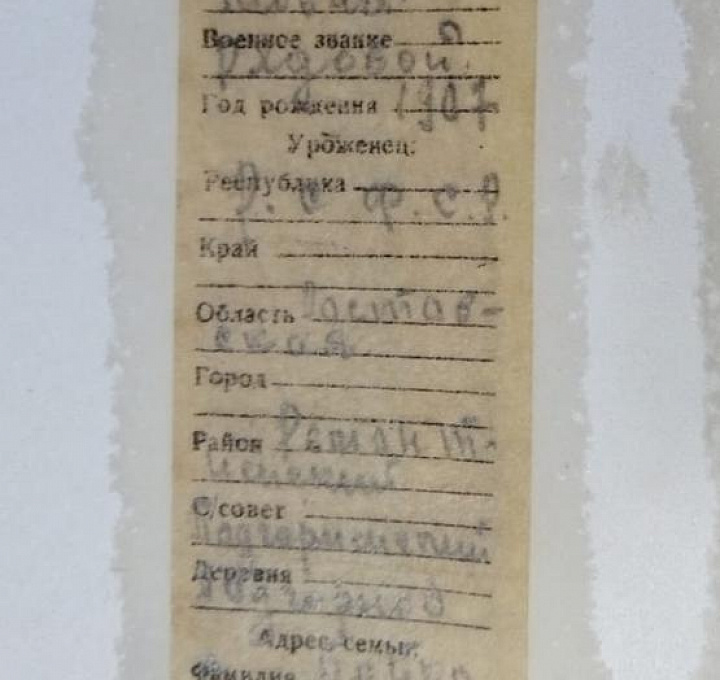 Военное звание
Рядовой
Год рождения 1907
Уроженец:
Республика
Р.С.Ф.С.Р.
Край
Область Ростов-
ская
Город
Район Ремонт-
ненский
С/совет
Подгорненский
Деревня
Адрес семьи:
Фамилия